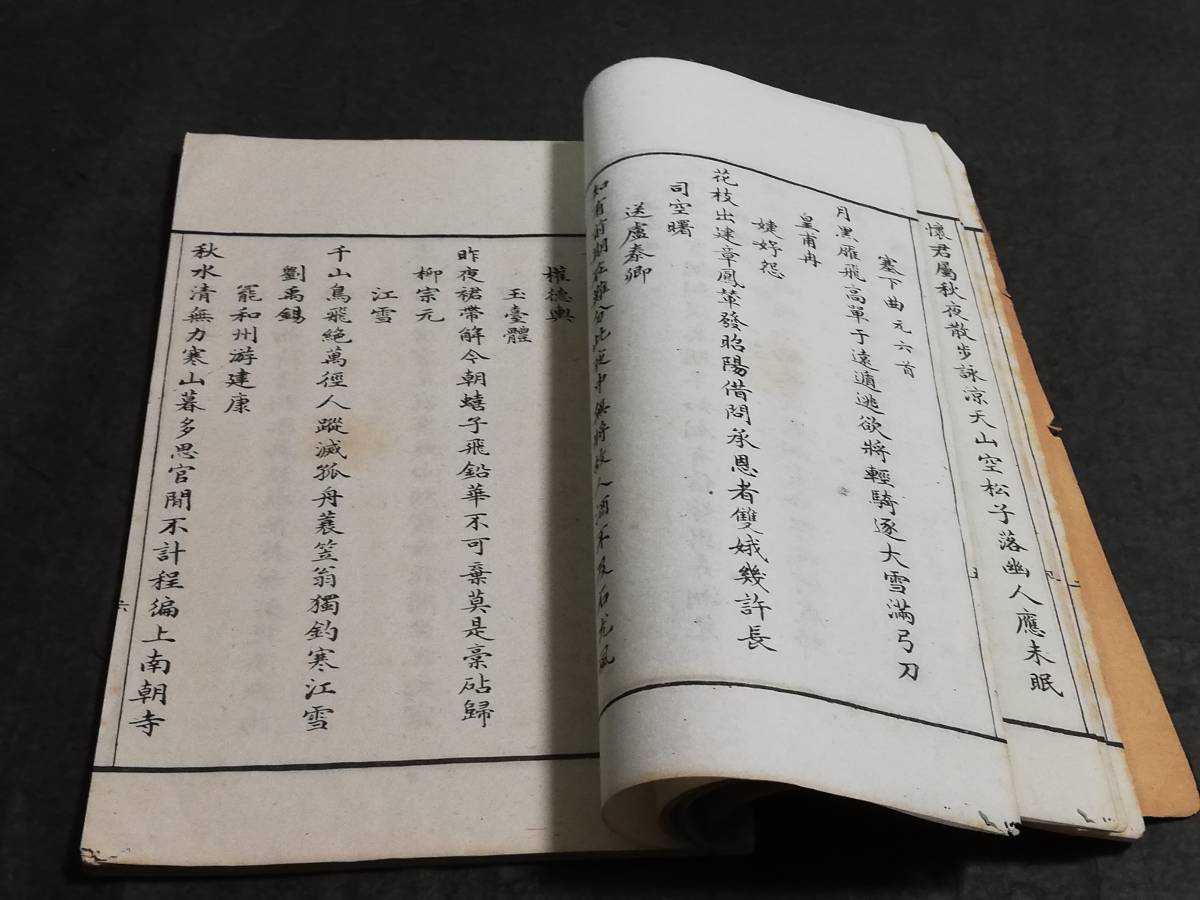 懷君屬秋夜散步詠涼天山空松子落幽人應未眠
塞下曲元六首
月黑雁飛高單于遠遁逃欲將輕騎逐大雪滿弓刀
皇甫冉
婕妤怨
花枝出建章鳳輦發昭陽借問承恩者雙娥幾許長
司空曙
送盧秦卿
知有前期在難分此夜中無將故人酒不及石尤風
五
權德輿
玉臺體
昨夜裙帶解今朝蟢子飛鉛華不可棄莫是藁砧歸
柳宗元
江雪
千山鳥飛絕萬徑人蹤滅孤舟蓑笠翁獨釣寒江雪
劉禹錫
罷和州游建康
秋水清無力寒山暮多思官閒不計程編上南朝寺
六